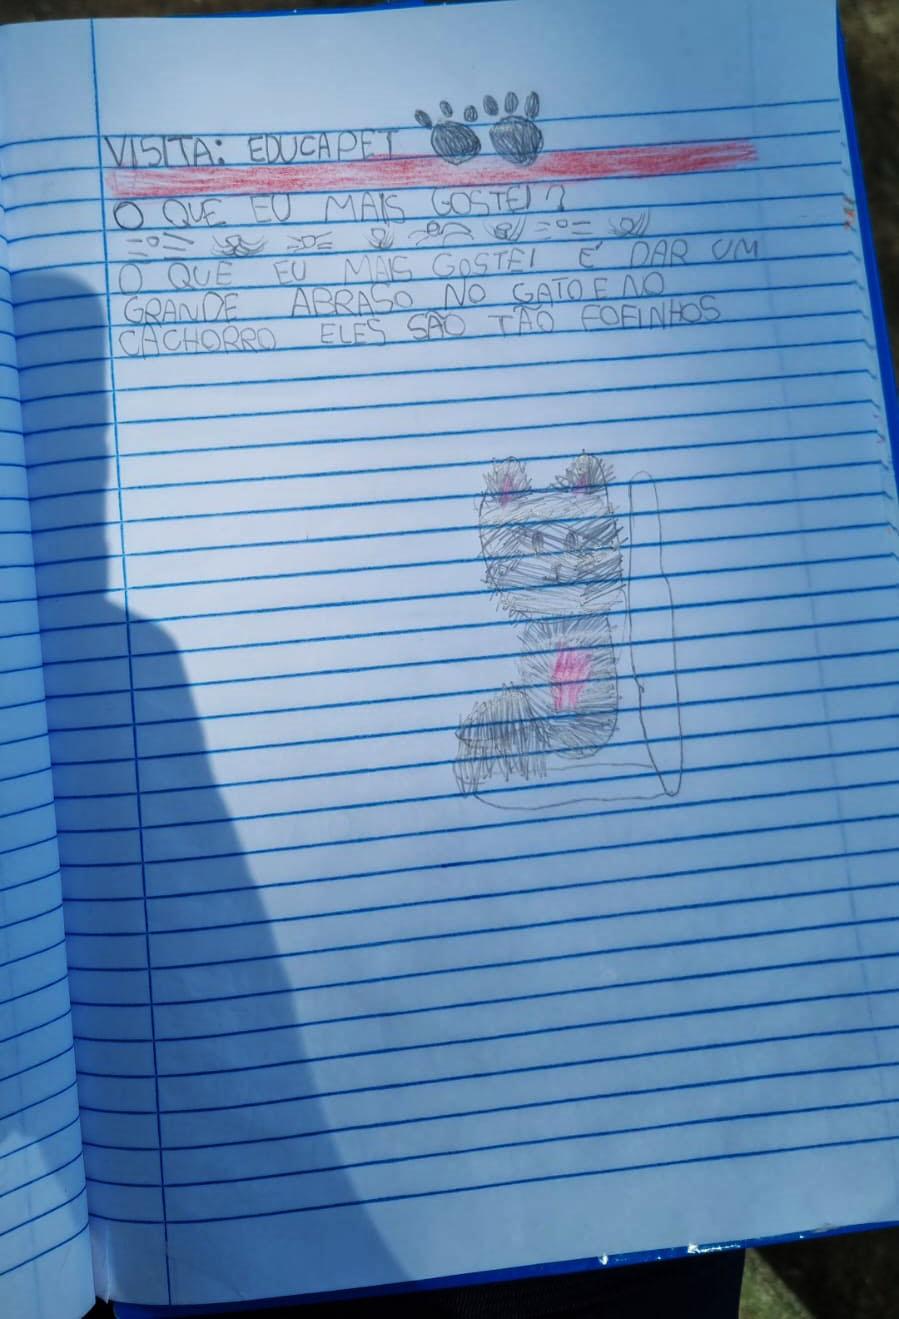 VISITA: EDUCAPET
O QUE EU MAIS GOSTEI?
O QUE EU MAIS GOSTEI É DAR UM
GRANDE ABRASO NO GATO E NO
CACHORRO ELES SÃO TÃO FOFINHOS